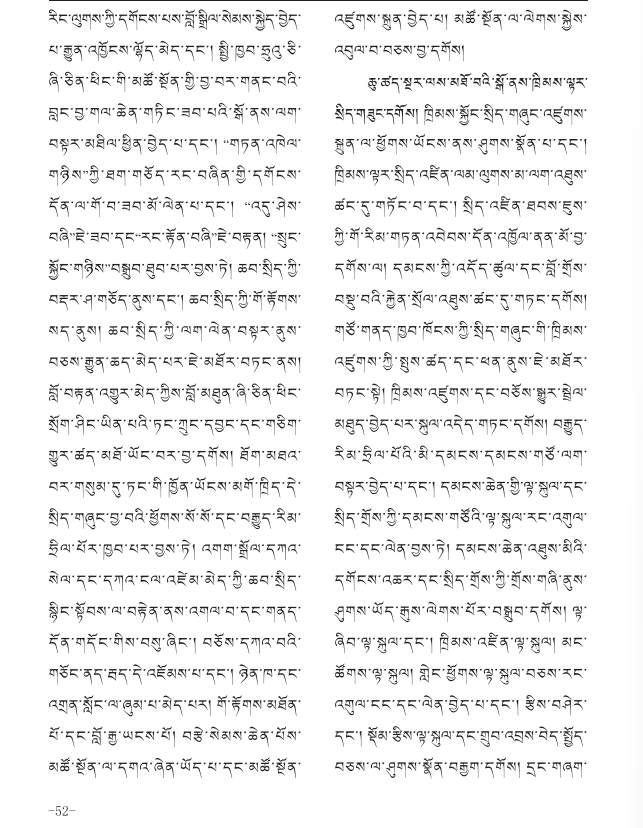 རིང་ལུགས་ཀྱི་དགོངས་པས་བློ་སྒྲིལ་སེམས་སྐྱེད་བྱེད་
པ་རྒྱུན་འཁྱོངས་ལྷོད་མེད་དང་། སྤྱི་ཁྱབ་ཧྲུའུ་ཅི་
ཞི་ཅིན་ཕིང་གི་མཚོ་སྔོན་གྱི་བྱ་བར་གནང་བའི་
བླང་བྱ་གལ་ཆེན་གཏིང་ཟབ་པའི་སྒོ་ནས་ལག་
བསྟར་མཐིལ་ཕྱིན་བྱེད་པ་དང་། “གཏན་འཁེལ་
གཉིས”ཀྱི་ཐག་གཅོད་རང་བཞིན་གྱི་དགོངས་
དོན་ལ་གོ་བ་ཟབ་མོ་ལེན་པ་དང་། “འདུ་ཤེས་
བཞི”ཇེ་ཟབ་དང“རང་རྟོན་བཞི”ཇེ་བརྟན། “སྲུང་
སྐྱོང་གཉིས”བསྒྲུབ་ཐུབ་པར་བྱས་ཏེ། ཆབ་སྲིད་ཀྱི་
བརྡར་ཤ་གཅོད་ནུས་དང་། ཆབ་སྲིད་ཀྱི་གོ་རྟོགས་
སད་ནུས། ཆབ་སྲིད་ཀྱི་ལག་ལེན་བསྟར་ནུས་
བཅས་རྒྱུན་ཆད་མེད་པར་ཇེ་མཐོར་བཏང་ནས།
བློ་བརྟན་འགྱུར་མེད་ཀྱིས་བློ་མཐུན་ཞི་ཅིན་ཕིང་
སྲོག་ཤིང་ཡིན་པའི་ཏང་ཀྲུང་དབྱང་དང་གཅིག་
གྱུར་ཚད་མཐོ་ཡོང་བར་བྱ་དགོས། ཐོག་མཐའ་
བར་གསུམ་དུ་ཏང་གི་ཁྱོན་ཡོངས་མགོ་ཁྲིད་དེ་
སྲིད་གཞུང་བྱ་བའི་ཕྱོགས་སོ་སོ་དང་བརྒྱུད་རིམ་
ཧྲིལ་པོར་ཁྱབ་པར་བྱས་ཏེ། འགག་སྒྲོལ་དཀའ་
སེལ་དང་དཀའ་ངལ་འཛེམ་མེད་ཀྱི་ཆབ་སྲིད་
སྙིང་སྟོབས་ལ་བརྟེན་ནས་འགལ་བ་དང་གནད་
དོན་གདོང་གིས་བསུ་ཞིང་། བཅོས་དཀའ་བའི་
གཅོང་ནད་རྦད་དེ་འཇོམས་པ་དང་། ཉེན་ཁ་དང་
འགྲན་སློང་ལ་ཞུམ་པ་མེད་པར། གོ་རྟོགས་མཐོན་
པོ་དང་བློ་རྒྱ་ཡངས་པོ། བརྩེ་སེམས་ཆེན་པོས་
མཚོ་སྔོན་ལ་དགའ་ཞེན་ཡོད་པ་དང་མཚོ་སྔོན་
འཛུགས་སྐྲུན་བྱེད་པ། མཚོ་སྔོན་ལ་ལེགས་སྐྱེས་
འབུལ་བ་བཅས་བྱ་དགོས།
ཆུ་ཚད་སྔར་ལས་མཐོ་བའི་སྒོ་ནས་ཁྲིམས་ལྟར་
སྲིད་གཟུང་དགོས། ཁྲིམས་སྐྱོང་སྲིད་གཞུང་འཛུགས་
སྐྲུན་ལ་ཕྱོགས་ཡོངས་ནས་ཤུགས་སྣོན་པ་དང་།
ཁྲིམས་ལྟར་སྲིད་འཛིན་ལམ་ལུགས་མ་ལག་འཐུས་
ཚང་དུ་གཏོང་བ་དང་། སྲིད་འཛིན་ཐབས་ཇུས་
ཀྱི་གོ་རིམ་གཏན་འབེབས་དོན་འཁྱོལ་ནན་མོ་བྱ་
དགོས་ལ། དམངས་ཀྱི་འདོད་ཚུལ་དང་བློ་གྲོས་
བསྡུ་བའི་རྐྱེན་སྲོལ་འཐུས་ཚང་དུ་གཏང་དགོས།
གཙོ་གནད་ཁྱབ་ཁོངས་ཀྱི་སྲིད་གཞུང་གི་ཁྲིམས་
འཛུགས་ཀྱི་སྤུས་ཚད་དང་ཕན་ནུས་ཇེ་མཐོར་
བཏང་སྟེ། ཁྲིམས་འཛུགས་དང་བཅོས་སྒྱུར་སྦྲེལ་
མཐུད་བྱེད་པར་སྐུལ་འདེད་གཏང་དགོས། བརྒྱུད་
རིམ་ཧྲིལ་པོའི་མི་དམངས་དམངས་གཙོ་ལག་
བསྟར་བྱེད་པ་དང་། དམངས་ཆེན་གྱི་ལྟ་སྐུལ་དང་
སྲིད་གྲོས་ཀྱི་དམངས་གཙོའི་ལྟ་སྐུལ་རང་འགུལ་
ངང་དང་ལེན་བྱས་ཏེ། དམངས་ཆེན་འཐུས་མིའི་
དགོངས་འཆར་དང་སྲིད་གྲོས་ཀྱི་གྲོས་གཞི་ནུས་
ཤུགས་ཡོད་རྒུས་ལེགས་པོར་བསྒྲུབ་དགོས། ལྟ་
ཞིབ་ལྟ་སྐུལ་དང་། ཁྲིམས་འཛིན་ལྟ་སྐུལ། མང་
ཚོགས་ལྟ་སྐུལ། གླེང་ཕྱོགས་ལྟ་སྐུལ་བཅས་རང་
འགུལ་ངང་དང་ལེན་བྱེད་པ་དང་། རྩིས་བཤེར་
དང་། སྡོམ་རྩིས་ལྟ་སྐུལ་དང་གྲུབ་འབྲས་བེད་སྤྱོད་
བཅས་ལ་ཤུགས་སྣོན་བརྒྱག་དགོས། དྲང་གཞག་
-52-